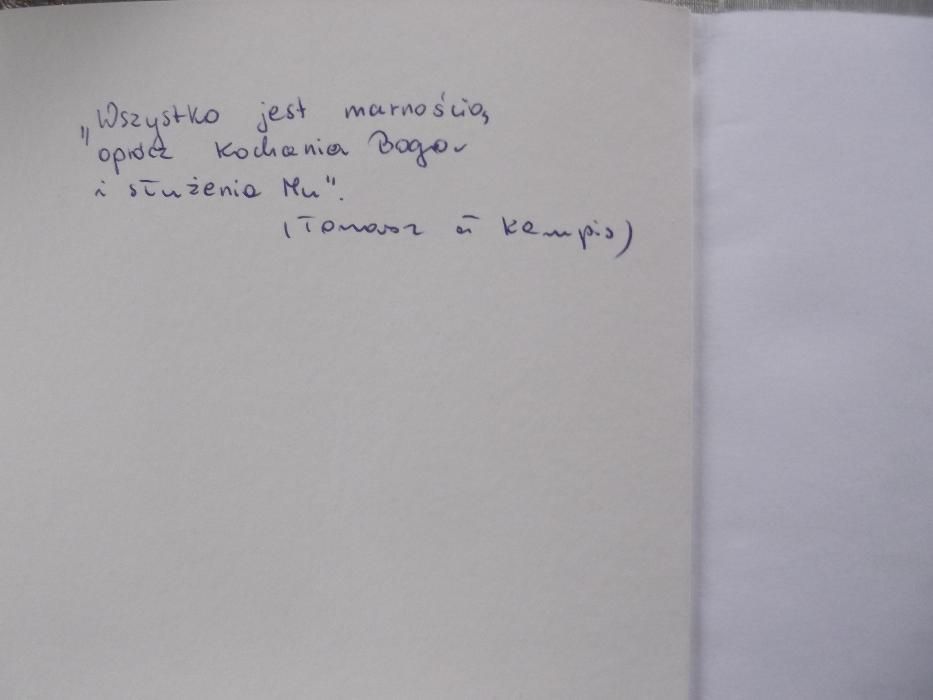 „Wszystko jest marnością
oprócz kochania Boga
i służenia Mu".
(Tomasz à Kempis)